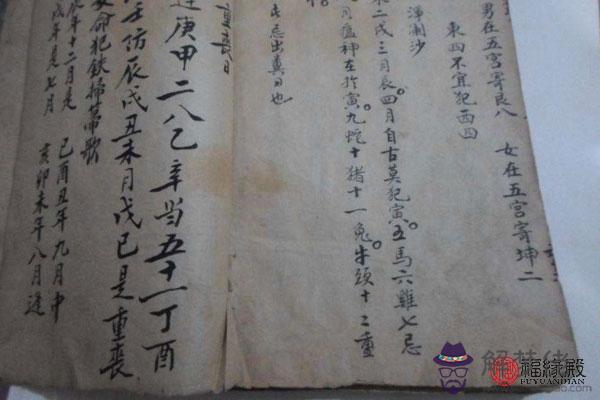 男在五宮寄艮八　女在五宮寄坤二
東四不宜犯西四
二戌三月辰四月自古莫犯寅五馬六雞七忌
月瘟神在於寅九蛇十猪十一兔牛頭十二重
忌出真日也
重喪日
庚甲二八乙辛当五十一丁酉
壬仿辰戌丑未月戊己是重喪
女命犯鉄掃箒歌
年十二月是　己酉丑年九月中
戌年是七月　亥卯未年八月逢
福緣殿
FUYUANDIAN